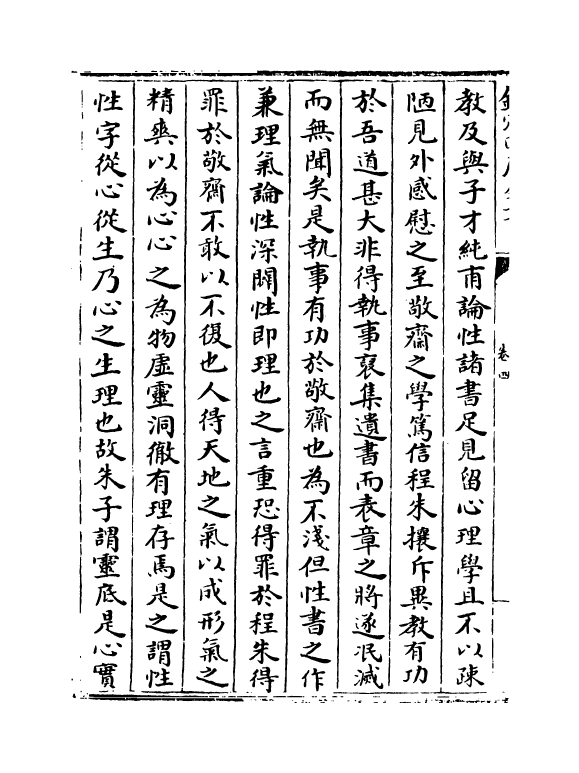 教及與子才純甫論性諸書足見留心理學且不以疎
陋見外感慰之至敬齋之學篤信程朱攘斥異教有功
於吾道甚大非得執事裒集遺書而表章之將遂泯滅
而無聞矣是執事有功於敬齋也為不淺但性書之作
兼理氣論性深闢性即理也之言重恐得罪於程朱得
罪於敬齋不敢以不復也人得天地之氣以成形氣之
精爽以為心心之為物虛靈洞徹有理存焉是之謂性
性字從心從生乃心之生理也故朱子謂靈底是心實
卷四